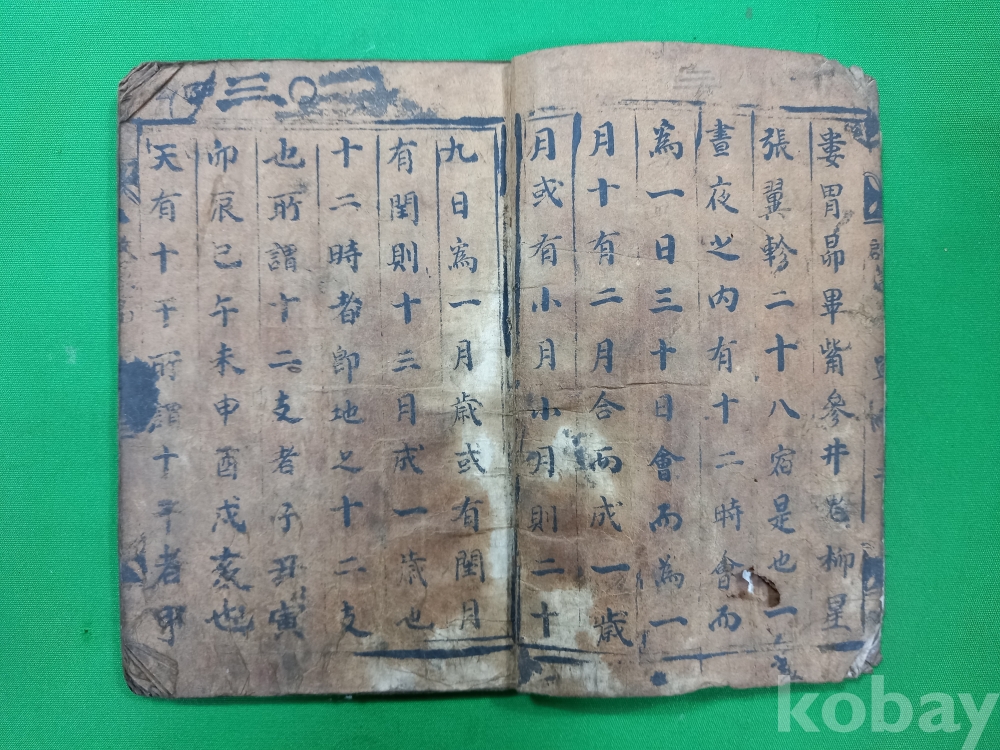 婁胃昴畢觜參井鬼柳星
張翼軫二十八宿是也一
晝夜之內有十二時會而
爲一日三十日會而為一
月十有二月合而成一歲
月或有小月小月則二十
九日爲一月歲或有閏月
有閏則十三月成一歲也
十二時者卽地之十二支
也所謂十二支者子丑寅
卯辰巳午未申酉戌亥也
天有十干所謂十干者甲
kobay